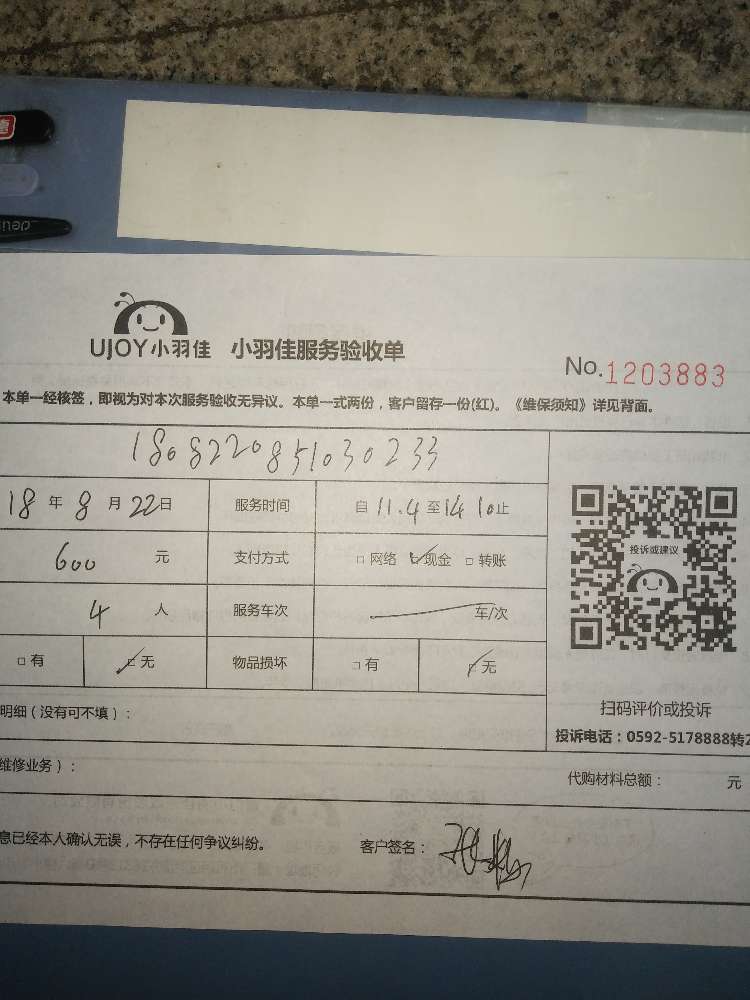 UJOY小羽佳 小羽佳服务验收单
No.1203883
本单一经核签，即视为对本次服务验收无异议。本单一式两份，客户留存一份(红)。《维保须知》详见背面。
1808220851030233
18年8月22日 服务时间 自11.4至14 10止
投诉或建议
600元 支付方式 □网络 ☑现金 □转账
4人 服务车次 车/次
□有 ☑无 物品损坏 □有 ☑无
扫码评价或投诉
明细（没有可不填）：
投诉电话：0592-5178888转2
维修业务）：
代购材料总额： 元
息已经本人确认无误，不存在任何争议纠纷。 客户签名：